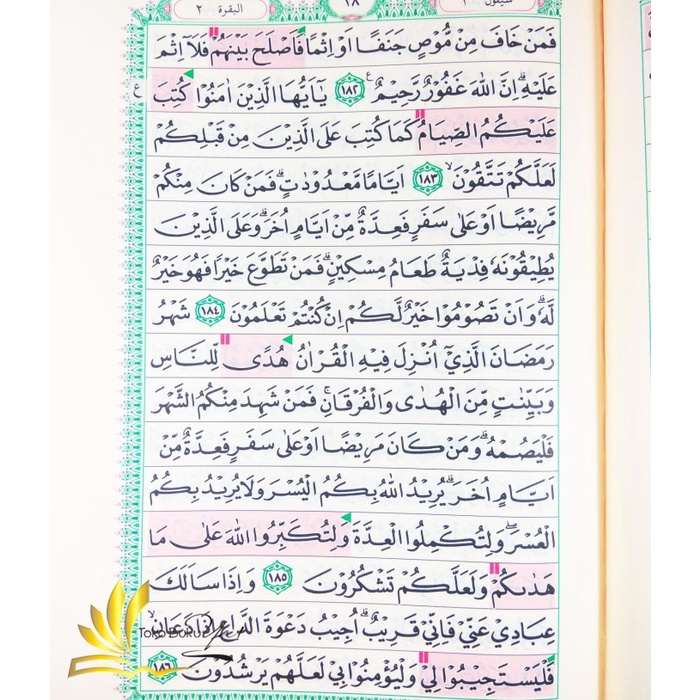 البقرة ٢
١٨
سيقول
فَمَنْ خَافَ مِنْ مُّوْصٍ جَنَفًا اَوْ اِثْمًا فَاَصْلَحَ بَيْنَهُمْ فَلَآ اِثْمَ
عَلَيْهِ ۗ اِنَّ اللّٰهَ غَفُوْرٌ رَّحِيْمٌ ࣖ ١٨٢ يٰٓاَيُّهَا الَّذِيْنَ اٰمَنُوْا كُتِبَ
ع
عَلَيْكُمُ الصِّيَامُ كَمَا كُتِبَ عَلَى الَّذِيْنَ مِنْ قَبْلِكُمْ
لَعَلَّكُمْ تَتَّقُوْنَۙ ١٨٣ اَيَّامًا مَّعْدُوْدٰتٍۗ فَمَنْ كَانَ مِنْكُمْ
مَّرِيْضًا اَوْ عَلٰى سَفَرٍ فَعِدَّةٌ مِّنْ اَيَّامٍ اُخَرَ ۗوَعَلَى الَّذِيْنَ
يُطِيْقُوْنَهٗ فِدْيَةٌ طَعَامُ مِسْكِيْنٍۗ فَمَنْ تَطَوَّعَ خَيْرًا فَهُوَ خَيْرٌ
لَّهٗ ۗ وَاَنْ تَصُوْمُوْا خَيْرٌ لَّكُمْ اِنْ كُنْتُمْ تَعْلَمُوْنَ ١٨٤ شَهْرُ
رَمَضَانَ الَّذِيْٓ اُنْزِلَ فِيْهِ الْقُرْاٰنُ هُدًى لِّلنَّاسِ
وَبَيِّنٰتٍ مِّنَ الْهُدٰى وَالْفُرْقَانِۚ فَمَنْ شَهِدَ مِنْكُمُ الشَّهْرَ
فَلْيَصُمْهُ ۗ وَمَنْ كَانَ مَرِيْضًا اَوْ عَلٰى سَفَرٍ فَعِدَّةٌ مِّنْ
اَيَّامٍ اُخَرَ ۗ يُرِيْدُ اللّٰهُ بِكُمُ الْيُسْرَ وَلَا يُرِيْدُ بِكُمُ
الْعُسْرَ ۖ وَلِتُكْمِلُوا الْعِدَّةَ وَلِتُكَبِّرُوا اللّٰهَ عَلٰى مَا
هَدٰىكُمْ وَلَعَلَّكُمْ تَشْكُرُوْنَ ١٨٥ وَاِذَا سَاَلَكَ
عِبَادِيْ عَنِّيْ فَاِنِّيْ قَرِيْبٌ ۗ اُجِيْبُ دَعْوَةَ الدَّاعِ اِذَا دَعَانِۙ
فَلْيَسْتَجِيْبُوْا لِيْ وَلْيُؤْمِنُوْا بِيْ لَعَلَّهُمْ يَرْشُدُوْنَ ١٨٦
Toko Buku